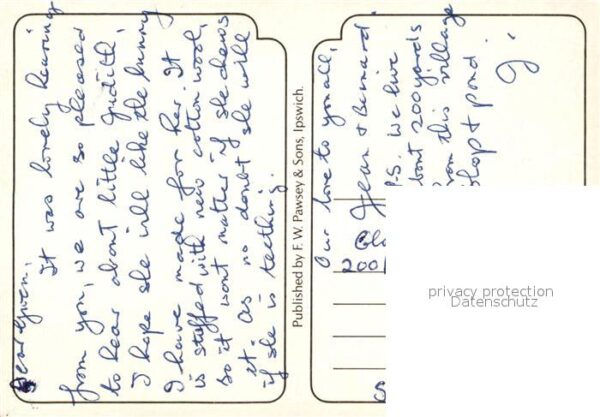 Dear Gwen,
It was lovely hearing
from you, we are so pleased
to hear about little Judith,
I hope she will like the bunny
I have made for her. It
is stuffed with new cotton wool,
so it wont matter if she chews
it. As no doubt she will
if she is teething.
Published by F. W. Pawsey & Sons, Ipswich.
Our love to you all,
Jean & Bernard.
P.S. We live
about 200 yards
from this village
shop & pond.
200
privacy protection
Datenschutz